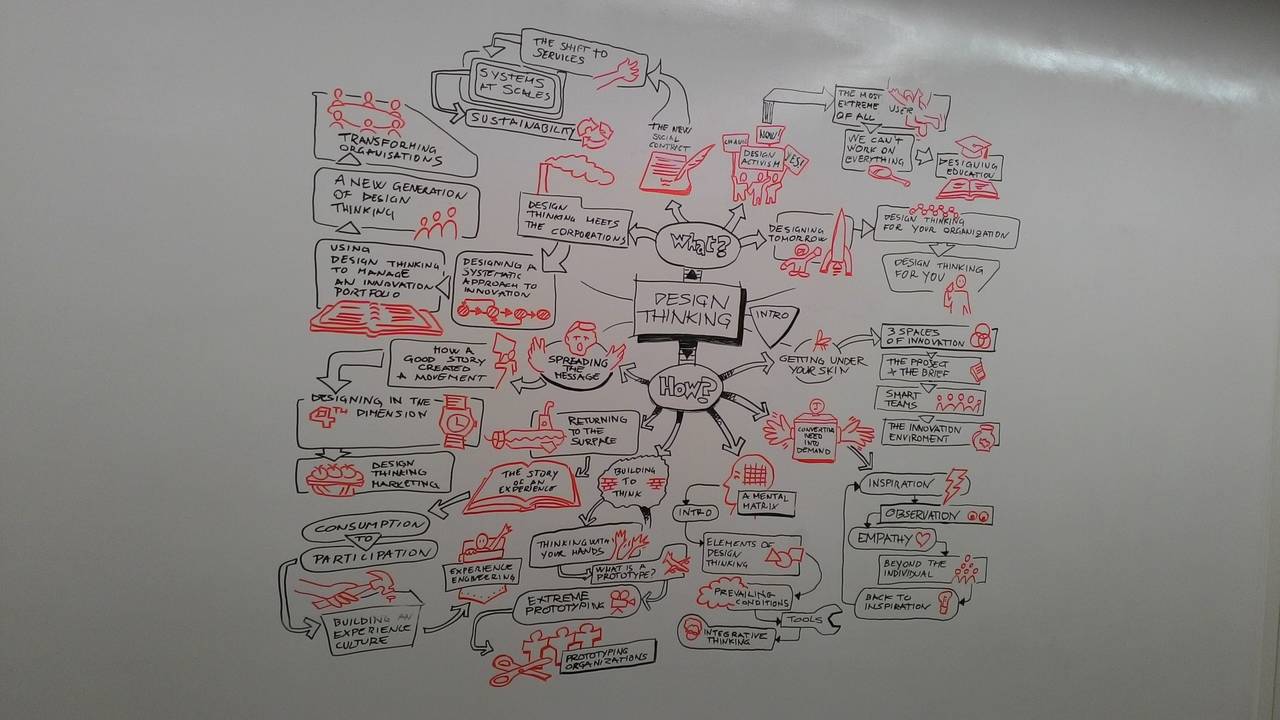 THE SHIFT TO
SERVICES
SYSTEMS
AT SCALES
SUSTAINABILITY
THE NEW
SOCIAL
CONTRACT
NOW!
YES!
DESIGN
ACTIVISM
THE MOST
EXTREME
OF ALL
USER
WE CAN'T
WORK ON
EVERYTHING
DESIGNING
EDUCATION
TRANSFORMING
ORGANISATIONS
A NEW GENERATION
OF DESIGN
THINKING
USING
DESIGN THINKING
TO MANAGE
AN INNOVATION
PORTFOLIO
DESIGN
THINKING MEETS
THE CORPORATIONS
DESIGNING A
SYSTEMATIC
APPROACH TO
INNOVATION
What?
DESIGNING
TOMORROW
DESIGN THINKING
FOR YOUR ORGANIZATION
DESIGN THINKING
FOR YOU
DESIGN
THINKING
INTRO
How?
GETTING UNDER
YOUR SKIN
3 SPACES
OF INNOVATION
THE PROJECT
+ THE BRIEF
SMART
TEAMS
THE INNOVATION
ENVIROMENT
SPREADING
THE
MESSAGE
HOW A
GOOD STORY
CREATED
A MOVEMENT
DESIGNING IN THE
4TH DIMENSION
DESIGN
THINKING
MARKETING
RETURNING
TO THE
SURFACE
THE STORY
OF AN
EXPERIENCE
CONSUMPTION
TO
PARTICIPATION
BUILDING AN
EXPERIENCE
CULTURE
EXPERIENCE
ENGINEERING
BUILDING
TO
THINK
THINKING WITH
YOUR HANDS
WHAT IS A
PROTOTYPE?
EXTREME
PROTOTYPING
PROTOTYPING
ORGANIZATIONS
A MENTAL
MATRIX
INTRO
ELEMENTS OF
DESIGN
THINKING
PREVAILING
CONDITIONS
TOOLS
INTEGRATIVE
THINKING
NEED
INTO
DEMAND
INSPIRATION
OBSERVATION
EMPATHY
BEYOND THE
INDIVIDUAL
BACK TO
INSPIRATION